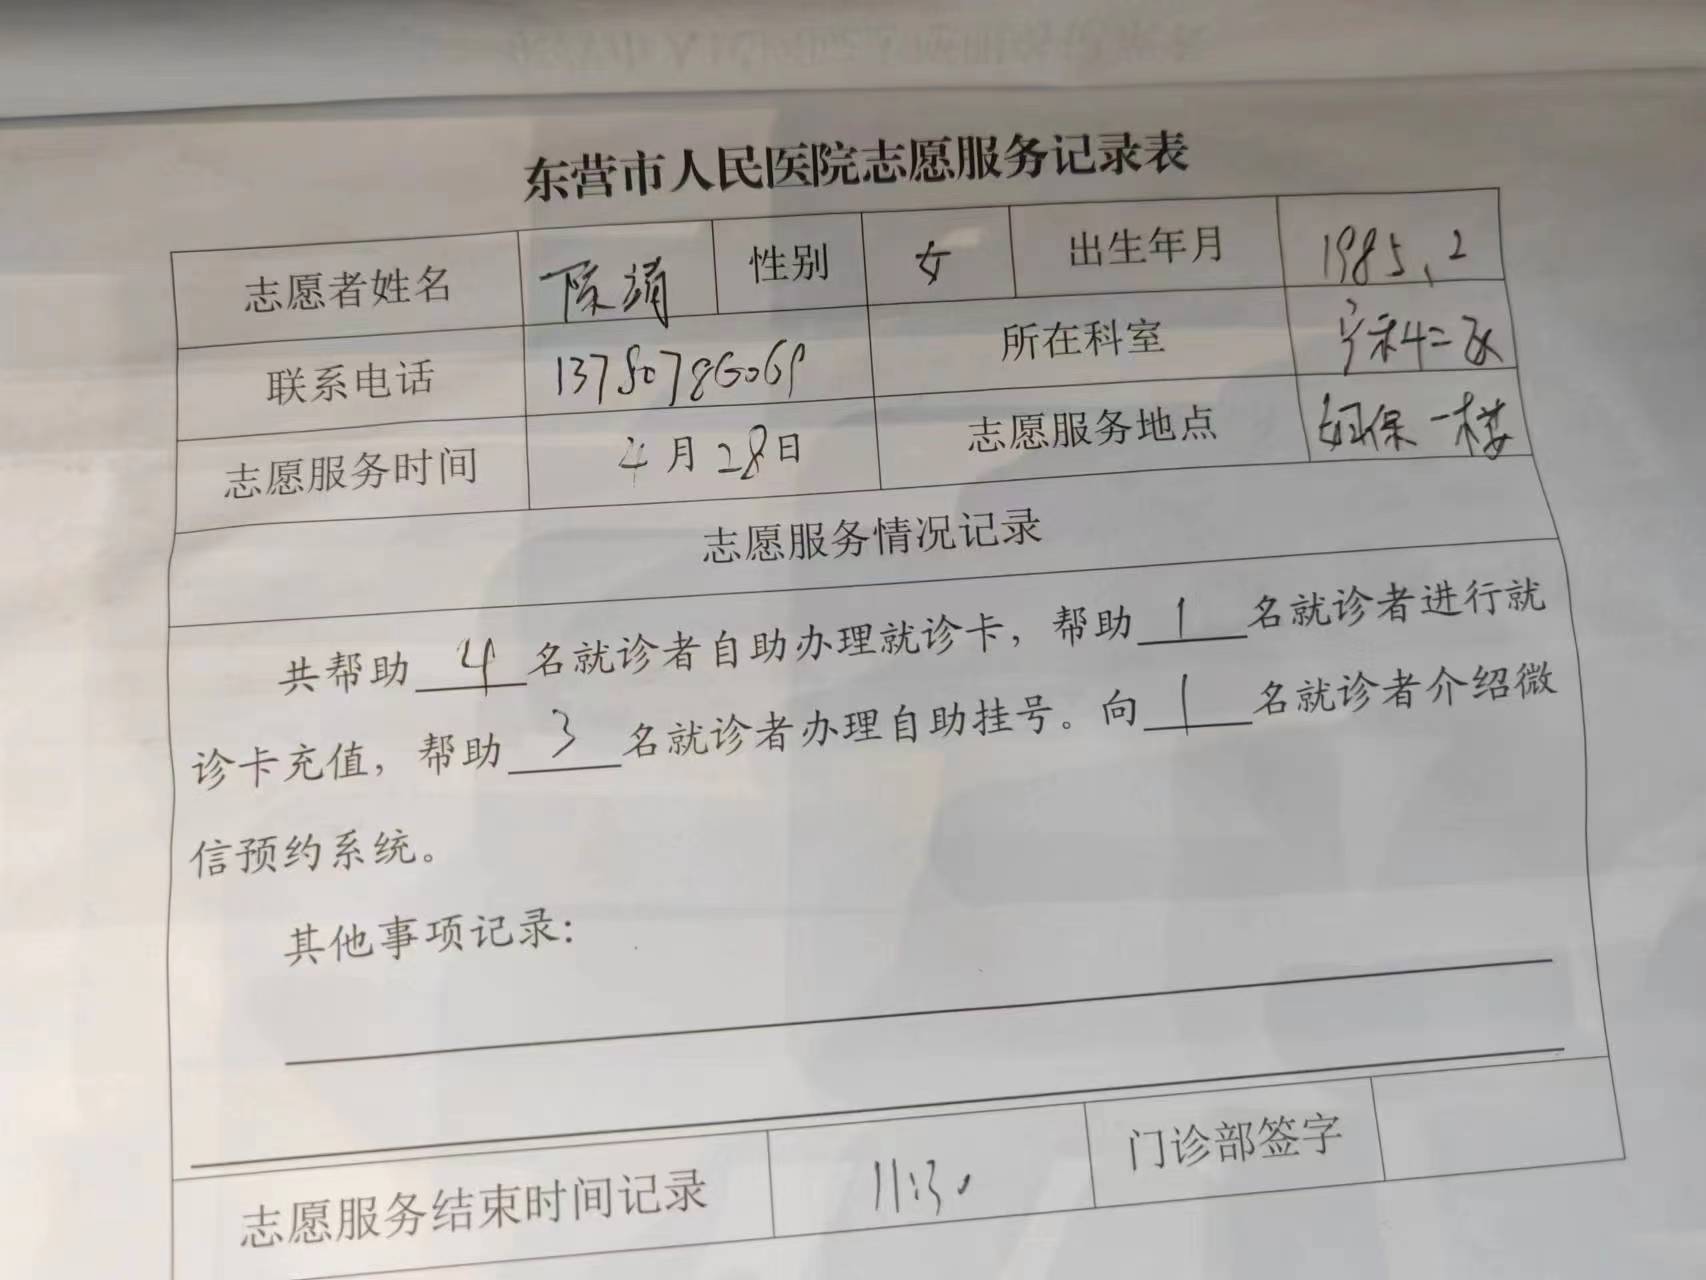 东营市人民医院志愿服务记录表
志愿者姓名 陈靖 性别 女 出生年月 1985、2
联系电话 所在科室 产科二区
志愿服务时间 4月28日 志愿服务地点 妇保一楼
志愿服务情况记录
共帮助4名就诊者自助办理就诊卡，帮助1名就诊者进行就
诊卡充值，帮助3名就诊者办理自助挂号。向1名就诊者介绍微
信预约系统。
其他事项记录：
志愿服务结束时间记录 11:30 门诊部签字